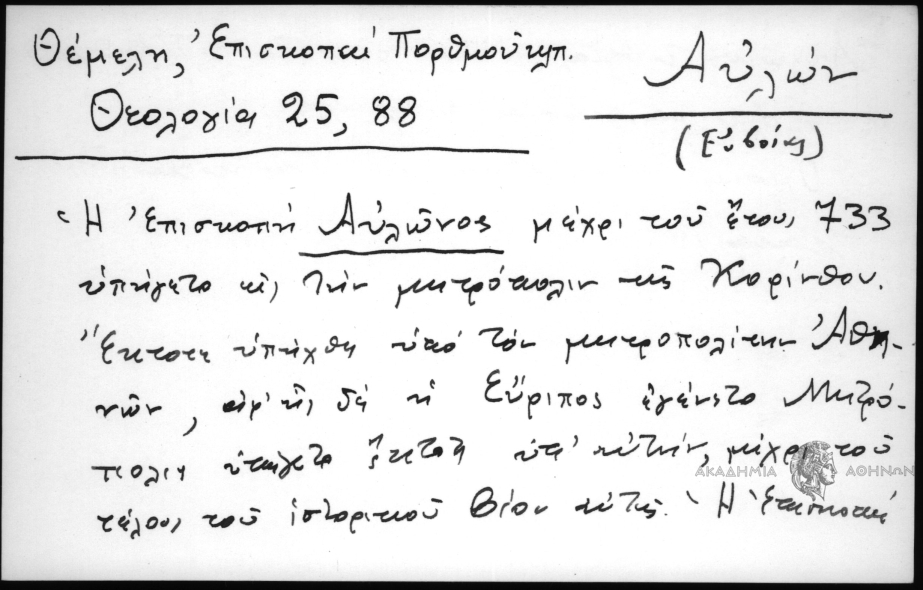 Θέμελη, Ἐπισκοπαί Πορθμοῦ κλπ.
Θεολογία 25, 88
Αὐλών
(Εὐβοίας)
Ἡ Ἐπισκοπή Αὐλῶνος μέχρι τοῦ ἔτους 733
ὑπήγετο εἰς τήν μητρόπολιν τῆς Κορίνθου.
Ἔκτοτε ὑπήχθη ὑπό τόν μητροπολίτην Ἀθη-
νῶν, ἀφ' ἧς δέ ἡ Εὔριπος ἐγένετο Μητρό-
πολις ὑπήγετο ἔκτοτε ὑπ' αὐτήν, μέχρι τοῦ
τέλους τοῦ ἱστορικοῦ βίου αὐτῆς. Ἡ Ἐπισκοπή
ΑΚΑΔΗΜΙΑ ΑΘΗΝΩΝ